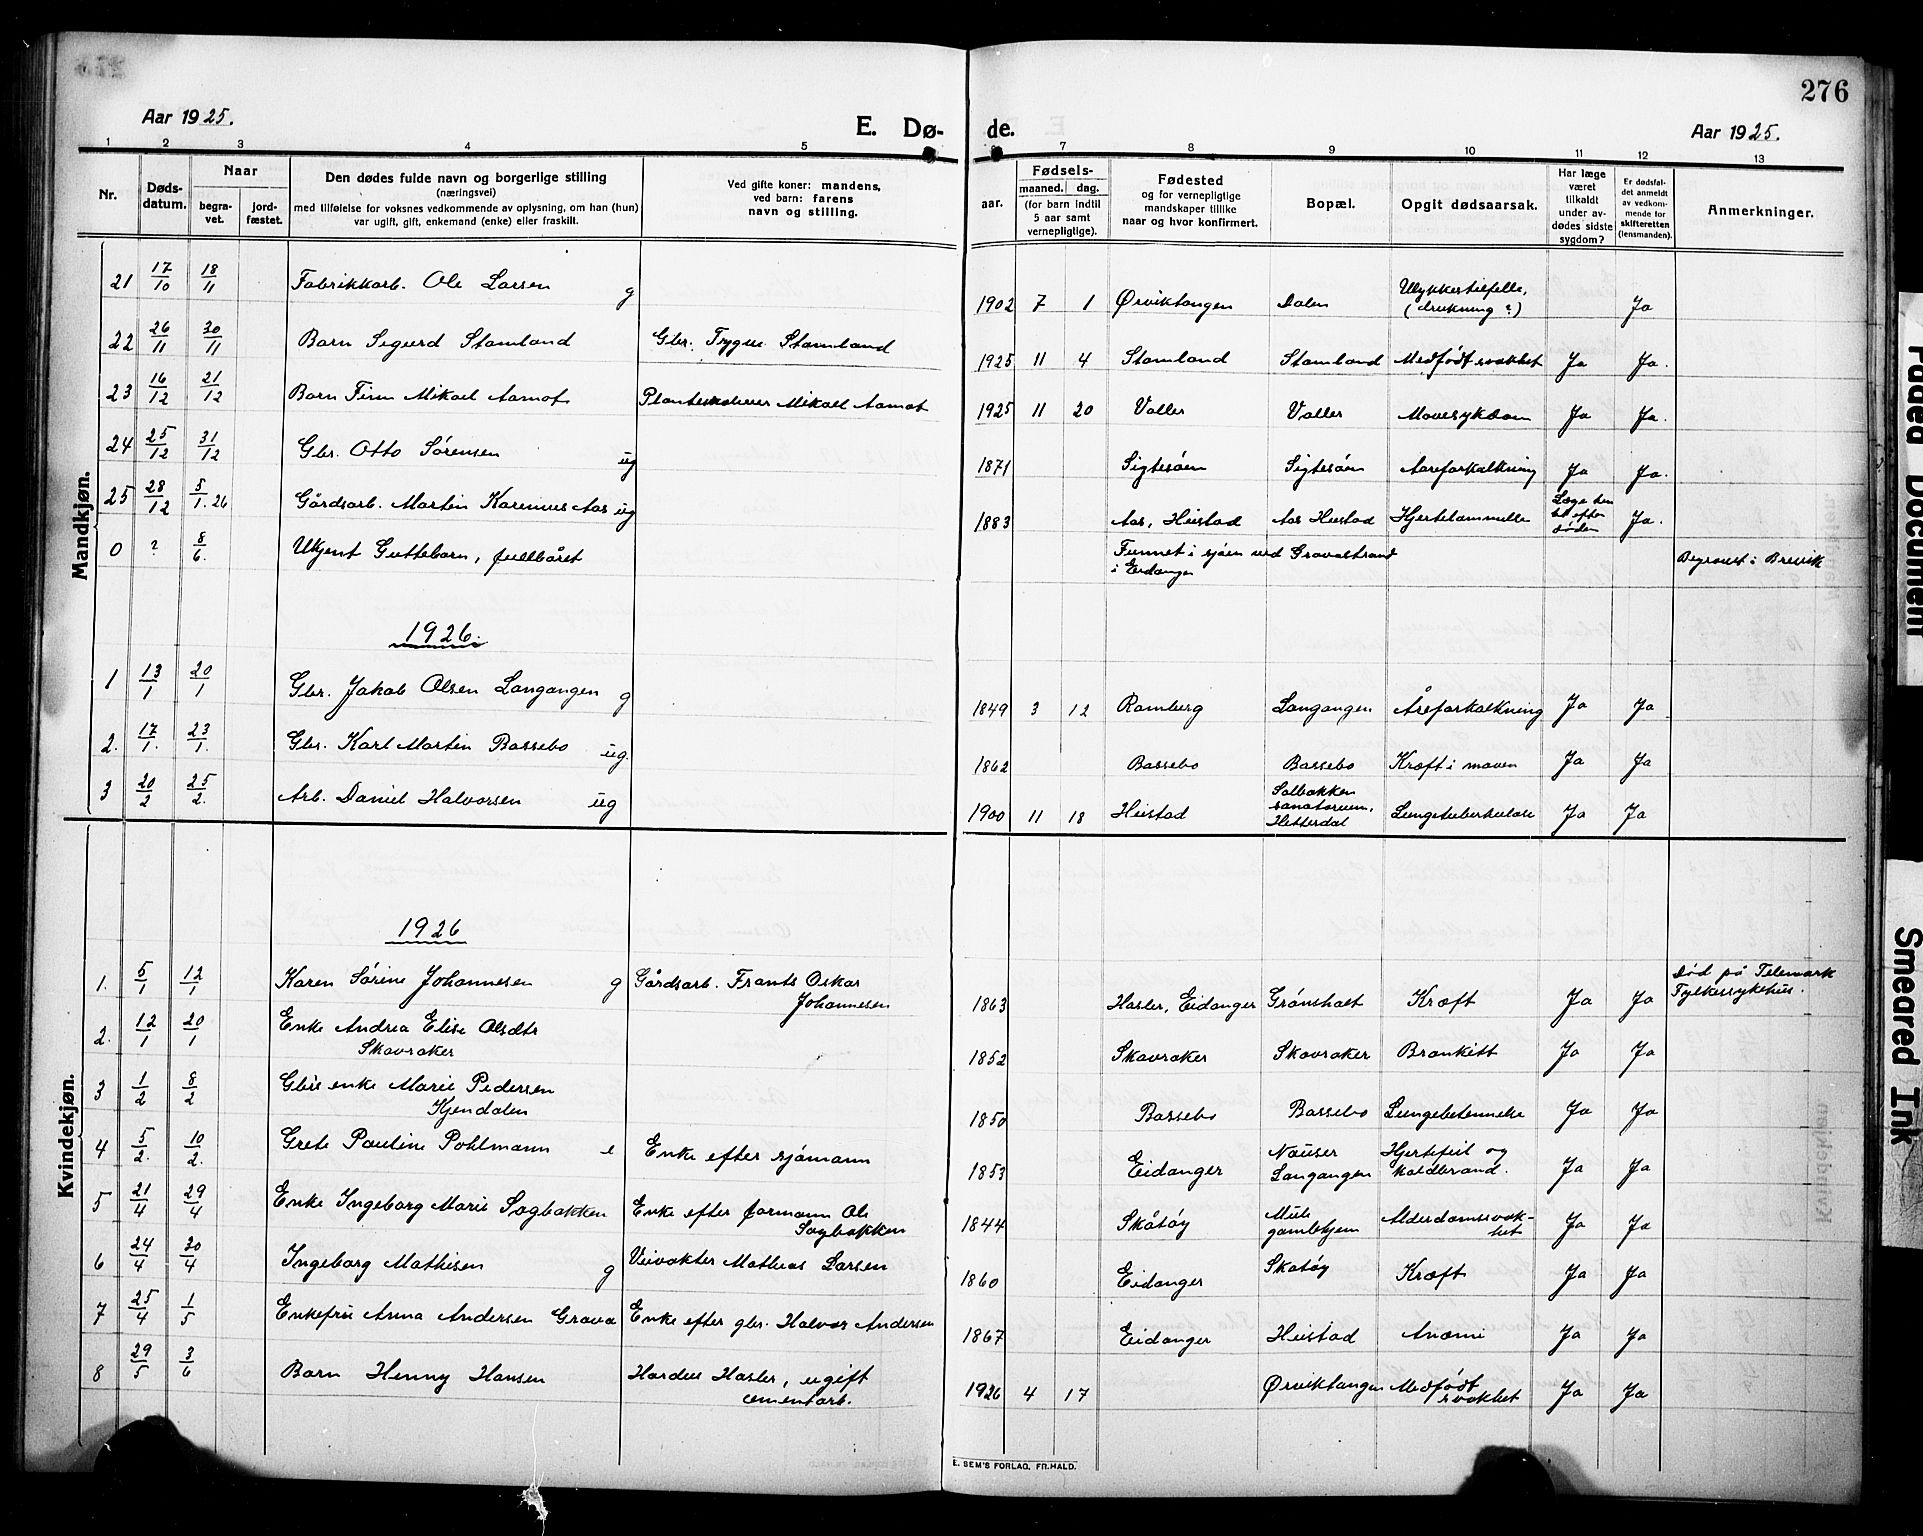 276
Aar 1925.
E. Dø- de.
Aar 1925.
1 2 3 4 5 6 7 8 9 10 11 12 13
Nr.
Døds-datum.
Naar
begra-vet.
jord-fæstet.
Den dødes fulde navn og borgerlige stilling
(næringsvei)
med tilføielse for voksnes vedkommende av oplysning, om han (hun)
var ugift, gift, enkemand (enke) eller fraskilt.
Ved gifte koner: mandens,
ved barn: farens
navn og stilling.
Fødsels-
aar.
maaned.
dag.
(for barn indtil
5 aar samt
vernepligtige).
Fødested
og for vernepligtige
mandskaper tillike
naar og hvor konfirmert.
Bopæl.
Opgit dødsaarsak.
Har læge
været
tilkaldt
under av-
dødes sidste
sygdom?
Er dødsfal-
det anmeldt
av vedkom-
mende for
skifteretten
(lensmanden).
Anmerkninger.
Mandkjøn.
21 17/10 18/11 Fabrikkarb. Ole Larsen g 1902 7 1 Ørviktangen Dalen Ulykkestilfelle, (drukning?) Ja
22 26/11 30/11 Barn Sigurd Stamland Gbr. Trygve Stamland 1925 11 4 Stamland Stamland Medfødt svakhet Ja Ja.
23 16/12 21/12 Barn Finn Mikael Aamot Mikael Aamot 1925 11 20 Valler Valler Mavesykdom Ja Ja.
24 25/12 31/12 Gbr. Otto Sørensen ug 1871 Sigtesøen Sigtesøen Aareforkalkning Ja Ja.
25 28/12 5/1.26 Gårdsarb. Martin Karenius Aas ug 1883 Aas, Heistad Aas Heistad Hjertelammelse Læge hentet efter døden Ja.
0 ? 8/6. Ukjent Guttebarn, fullbåret Funnet i sjøen ved Gravastrand
i Eidanger Begravet i Brevik
1926.
1 13/1 20/1 Gbr. Jakob Olsen Langangen g 1849 3 12 Ramberg Langangen Åreforkalkning Ja Ja
2. 17/1. 23/1. Gbr. Karl Martin Bassebo ug. 1862 Bassebo Bassebo Kræft i maven Ja Ja
3 20/2 25/2. Arb. Daniel Halvorsen ug 1900 11 18 Heistad Solbakken sanatorium, Hitterdal Lungetuberkulose Ja Ja
Kvindekjøn.
1926
1. 5/1 12/1 Karen Sørine Johannesen g Gårdsarb. Frants Oskar
Johannesen 1863 Hasler, Eidanger Grønsholt Kræft Ja Ja Død på Telemark
Fylkessykehus.
2. 12/1 20/1 Enke Andrea Elise Olsdtr
Skavraker 1852 Skavraker Skavraker Bronkitt Ja Ja
3 1/2 8/2 enke Marie Pedersen
Kjendalen 1850 Bassebo Bassebo Lungebetennelse Ja Ja
4 5/2. 10/2. Grete Pauline Pohlmann e Enke efter sjømann 1853 Eidanger Langangen Hjertefeil og
koldbrand. Ja Ja
5 21/4 29/4 Enke Ingeborg Marie Sagbakken Enke efter formann Ole
Sagbakken 1844 Skåtøy Mule
gamlehjem Alderdomssvak-
het Ja Ja
6 24/4 30/4 Ingeborg Mathisen g Veivokter Mathias Larsen 1860 Eidanger Skåtøy Kræft Ja Ja
7 25/4 1/5 Enkefru Anna Andersen Grava Enke efter gbr. Halvor Andersen 1867 Eidanger Heistad Anæmi Ja Ja
8 29/5 3/6 Barn Henny Hansen Hasler, ugift
cementarb. 1926 4 17 Ørviktangen Medfødt
svakhet Ja Ja
E. SEM'S FORLAG, FR.HALD.
Faded Document
Smeared Ink